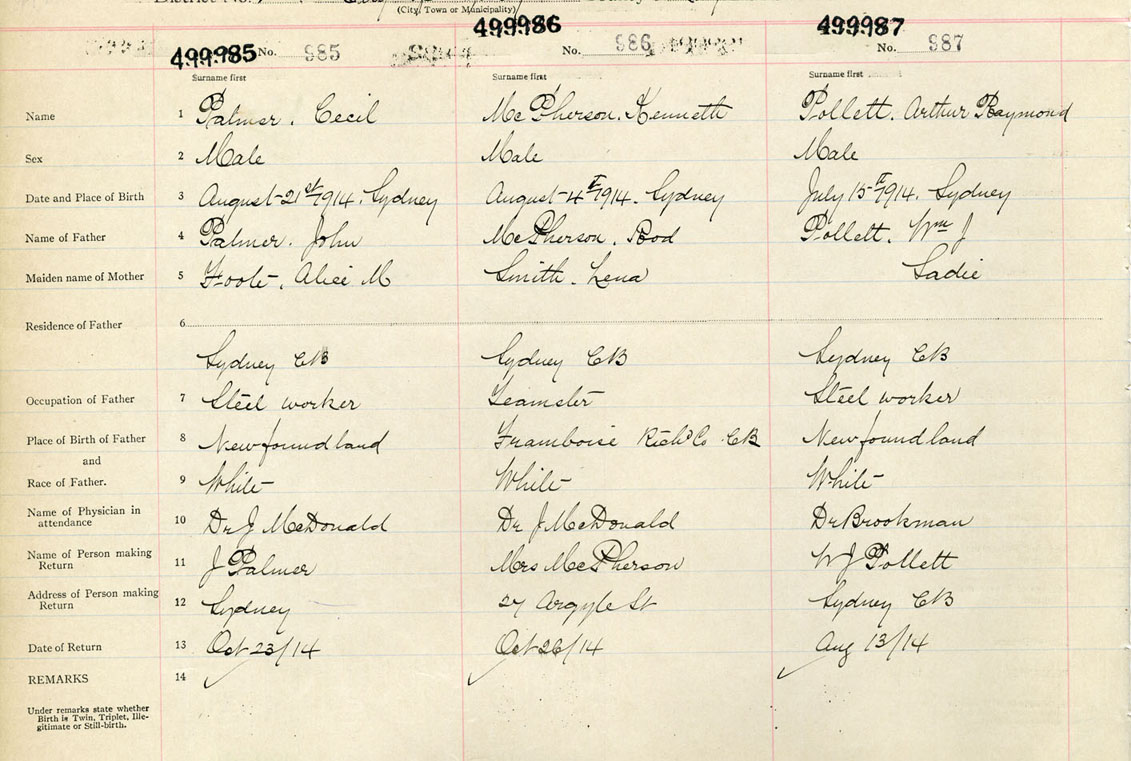 (City, Town or Municipality)
499985 No. 985 499986 No. 986 499987 No. 987
Surname first Surname first Surname first
Name 1 Palmer. Cecil McPherson. Kenneth Pollett. Arthur Raymond
Sex 2 Male Male Male
Date and Place of Birth 3 August 21st 1914. Sydney August 4th 1914. Sydney July 15th 1914. Sydney
Name of Father 4 Palmer. John McPherson. Rod Pollett. Wm J
Maiden name of Mother 5 Foote. Alice M Smith. Lena Sadie
Residence of Father 6
Sydney CB Sydney CB Sydney CB
Occupation of Father 7 Steel worker Teamster Steel worker
Place of Birth of Father 8 Newfoundland Framboise Richd Co CB Newfoundland
and
Race of Father. 9 White White White
Name of Physician in
attendance 10 Dr J McDonald Dr J McDonald Dr Brookman
Name of Person making
Return 11 J Palmer Mrs McPherson W J Pollett
Address of Person making
Return 12 Sydney 27 Argyle St Sydney CB
Date of Return 13 Oct 23/14 Oct 26/14 Aug 13/14
REMARKS 14
Under remarks state whether
Birth is Twin, Triplet, Ille-
gitimate or Still-birth.